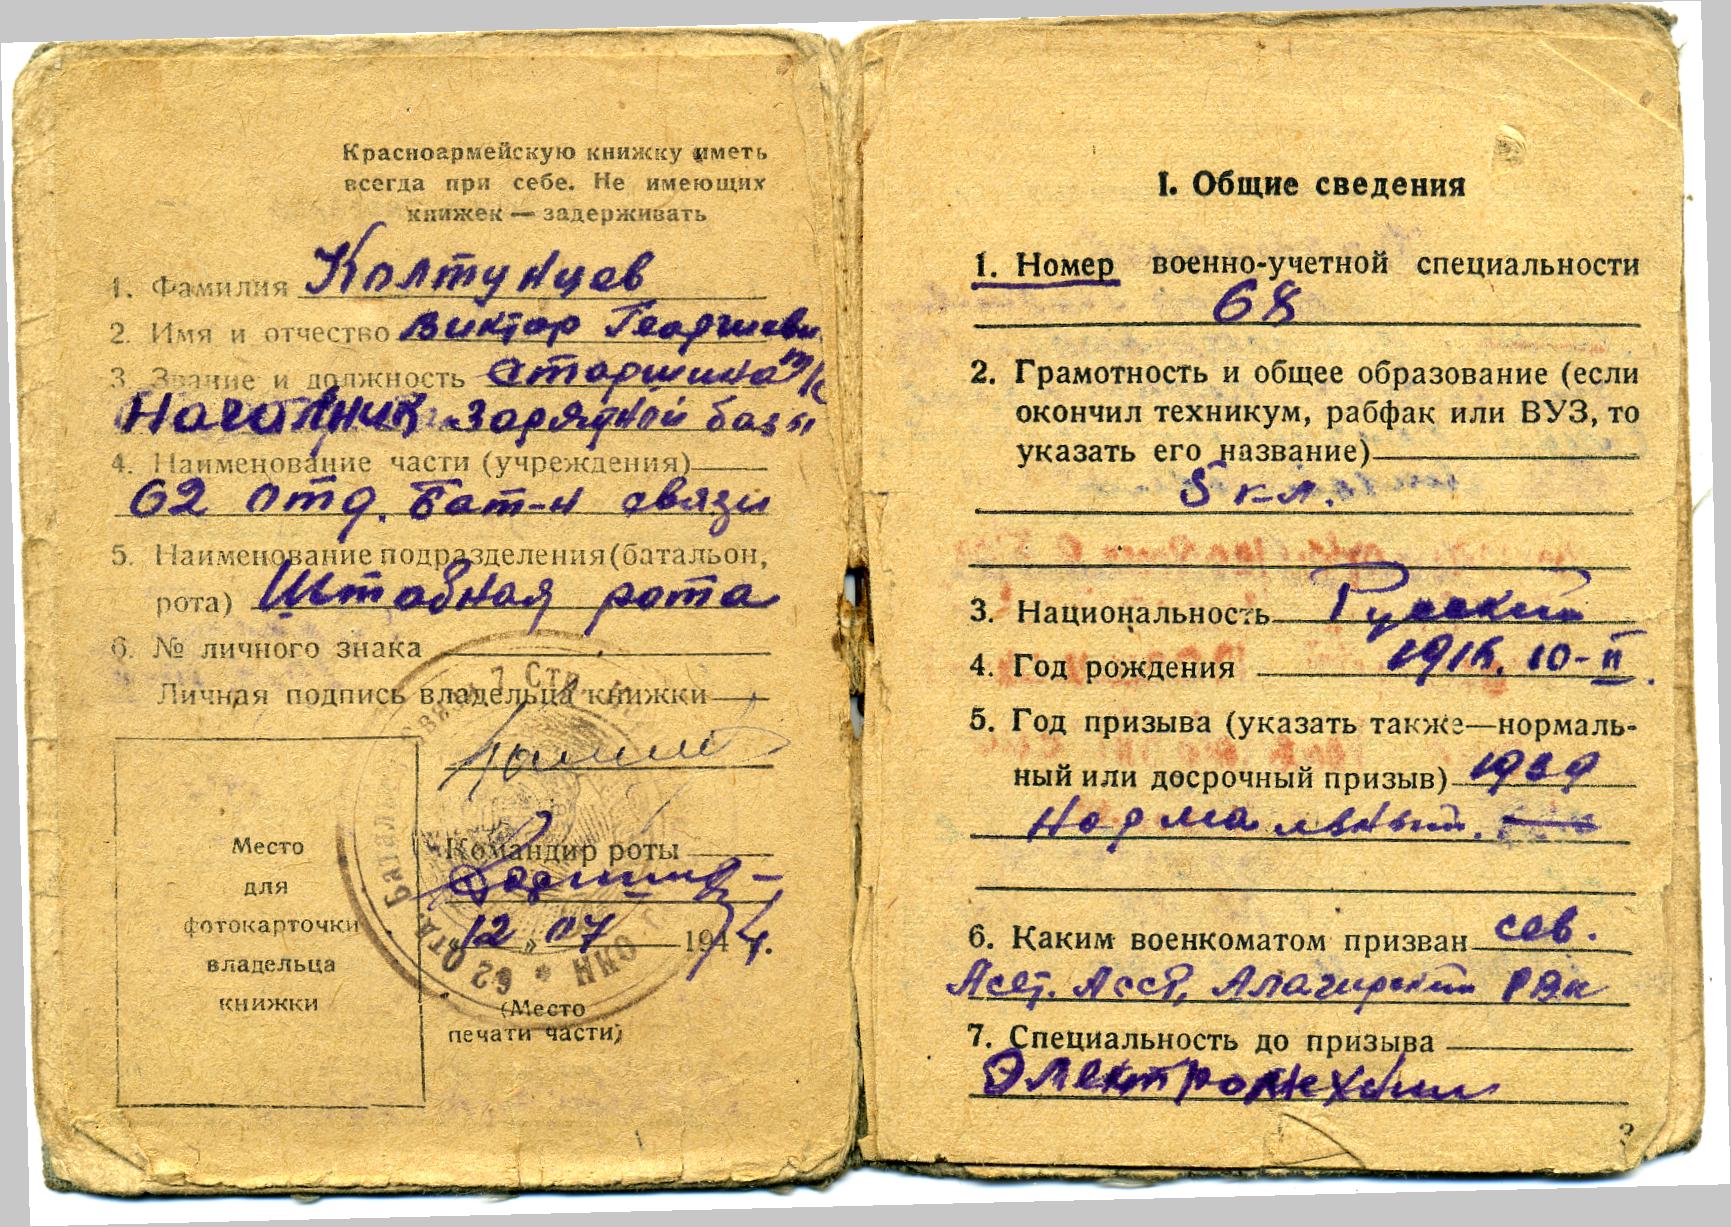 Красноармейскую книжку иметь
всегда при себе. Не имеющих
книжек — задерживать
1. Фамилия Колтунцев
2. Имя и отчество Виктор Георгиеви
3. Звание и должность Старшина т/с
Начальник зарядной базы
4. Наименование части (учреждения)
62 отд. Бат-н связи
5. Наименование подразделения (батальон,
рота) Штабная рота
6. № личного знака
Личная подпись владельца книжки
Место
для
фотокарточки
владельца
книжки
Командир роты
"12" 07 1944.
(Место
печати части)
62 Отд. Батальон связи 7 Стр.
I. Общие сведения
1. Номер военно-учетной специальности
68
2. Грамотность и общее образование (если
окончил техникум, рабфак или ВУЗ, то
указать его название)
5 кл.
3. Национальность Русский
4. Год рождения 10-II.
5. Год призыва (указать также—нормаль-
ный или досрочный призыв) 1939
Нормальный.
6. Каким военкоматом призван сев.
Асет. Асср, Алагирский РВК
7. Специальность до призыва
Электромеханик
3